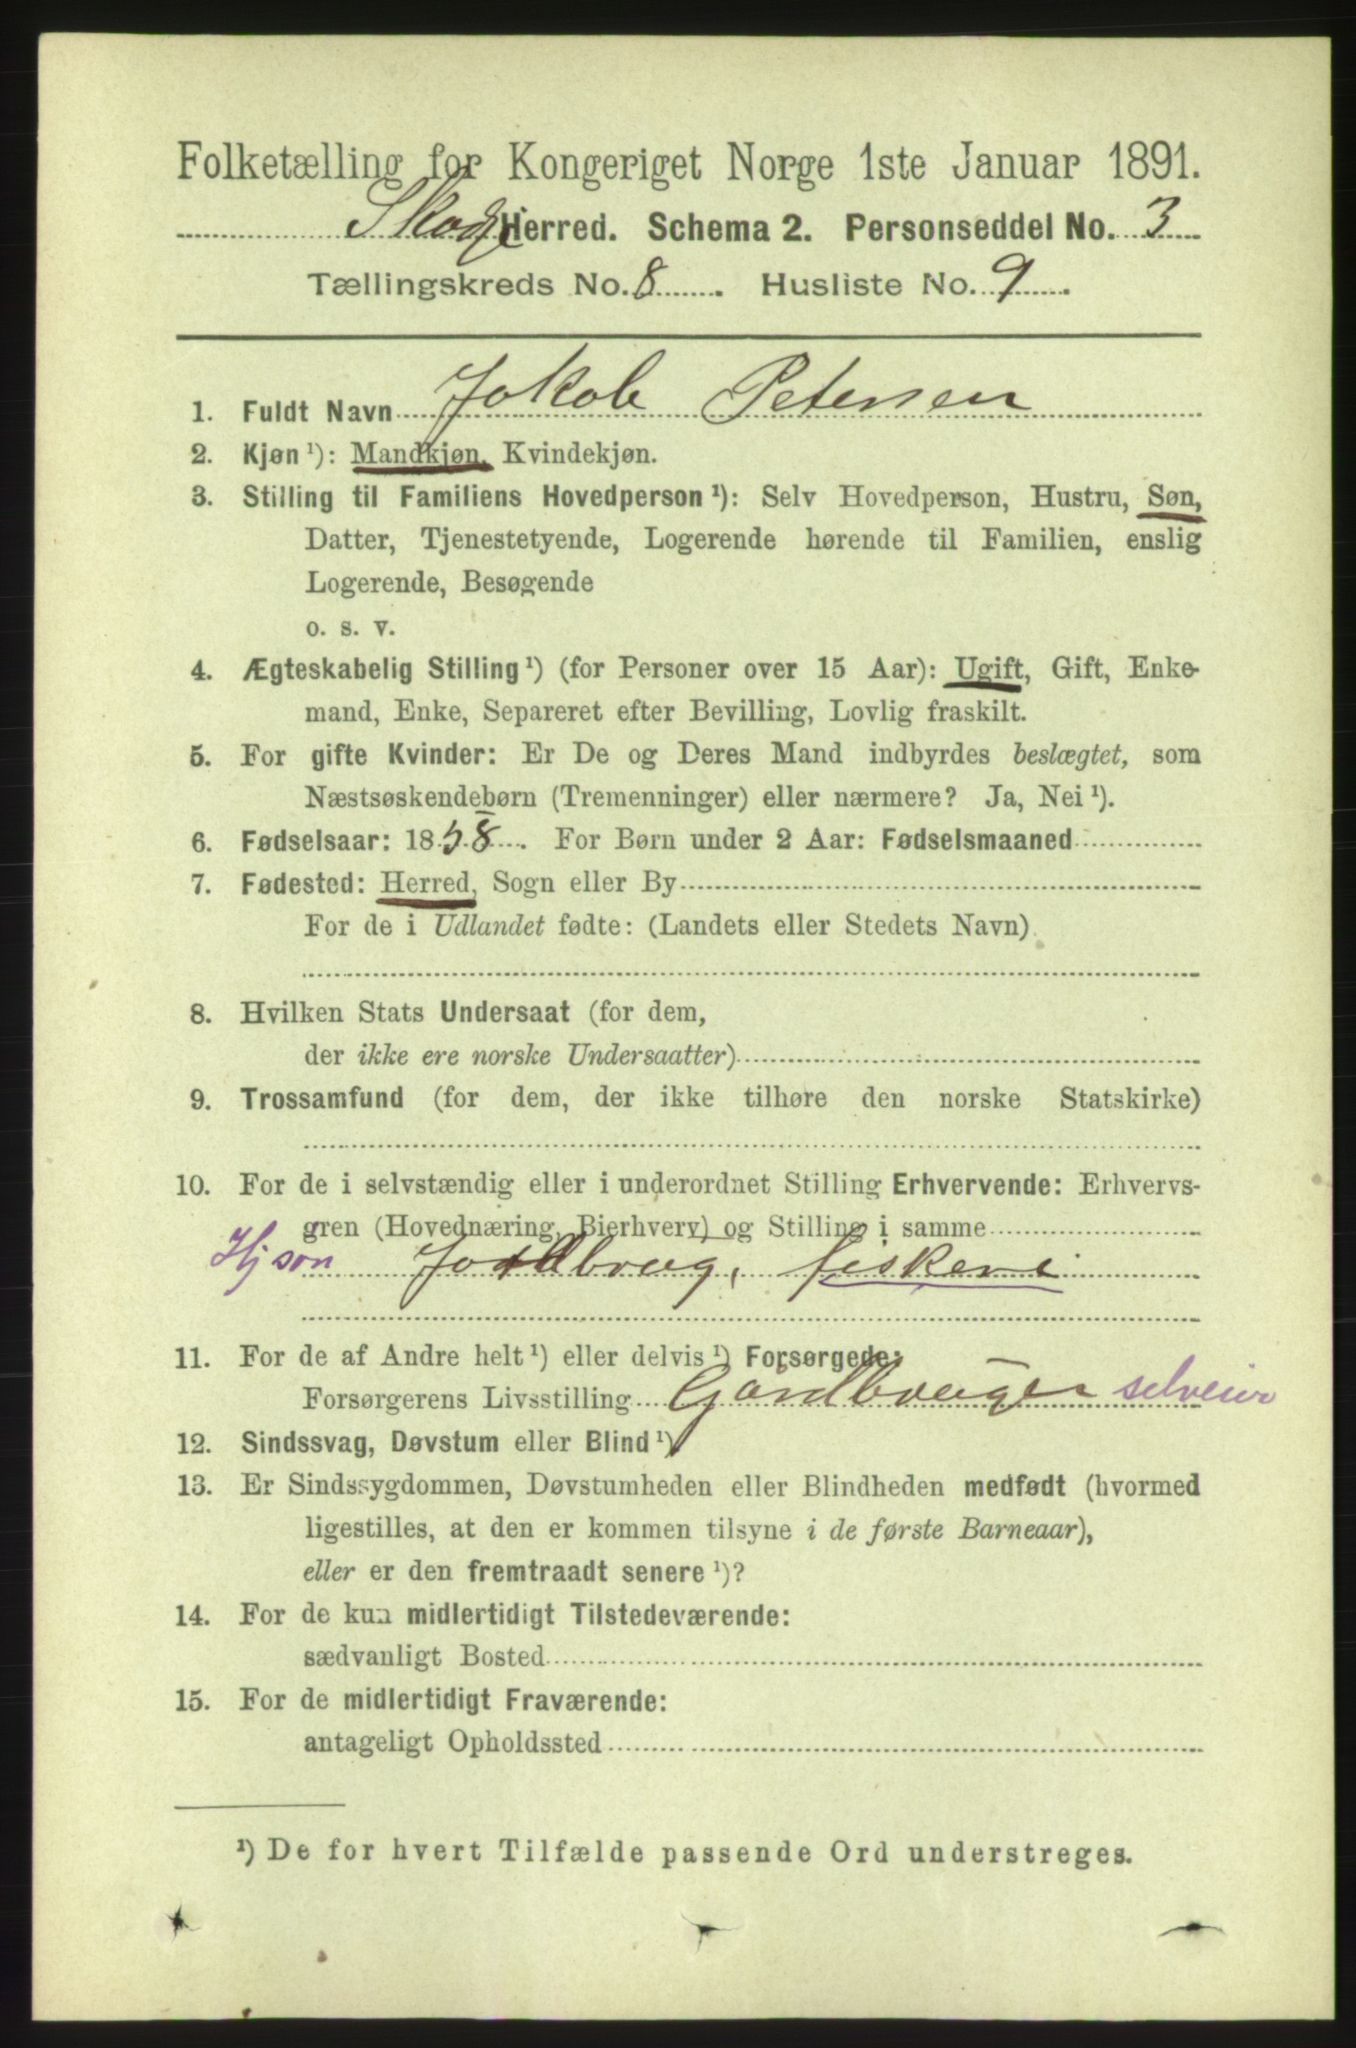 Folketælling for Kongeriget Norge 1ste Januar 1891.
Skodje Herred. Schema 2. Personseddel No. 3
Tællingskreds No. 8. Husliste No. 9.
1. Fuldt Navn Jakob Petersen
2. Kjøn ¹): Mandkjøn, Kvindekjøn.
3. Stilling til Familiens Hovedperson ¹): Selv Hovedperson, Hustru, Søn,
Datter, Tjenestetyende, Logerende hørende til Familien, enslig
Logerende, Besøgende
o. s. v.
4. Ægteskabelig Stilling ¹) (for Personer over 15 Aar): Ugift, Gift, Enke-
mand, Enke, Separeret efter Bevilling, Lovlig fraskilt.
5. For gifte Kvinder: Er De og Deres Mand indbyrdes beslægtet, som
Næstsøskendebørn (Tremenninger) eller nærmere? Ja, Nei ¹).
6. Fødselsaar: 1858. For Børn under 2 Aar: Fødselsmaaned
7. Fødested: Herred, Sogn eller By
For de i Udlandet fødte: (Landets eller Stedets Navn)
8. Hvilken Stats Undersaat (for dem,
der ikke ere norske Undersaatter)
9. Trossamfund (for dem, der ikke tilhøre den norske Statskirke)
10. For de i selvstændig eller i underordnet Stilling Erhvervende: Erhvervs-
gren (Hovednæring, Bierhverv) og Stilling i samme
Hj søn Jordbrug, fiskeri
11. For de af Andre helt ¹) eller delvis ¹) Forsørgede:
Forsørgerens Livsstilling Gårdbruger selveier
12. Sindssvag, Døvstum eller Blind ¹)
13. Er Sindssygdommen, Døvstumheden eller Blindheden medfødt (hvormed
ligestilles, at den er kommen tilsyne i de første Barneaar),
eller er den fremtraadt senere ¹)?
14. For de kun midlertidigt Tilstedeværende:
sædvanligt Bosted
15. For de midlertidigt Fraværende:
antageligt Opholdssted
¹) De for hvert Tilfælde passende Ord understreges.